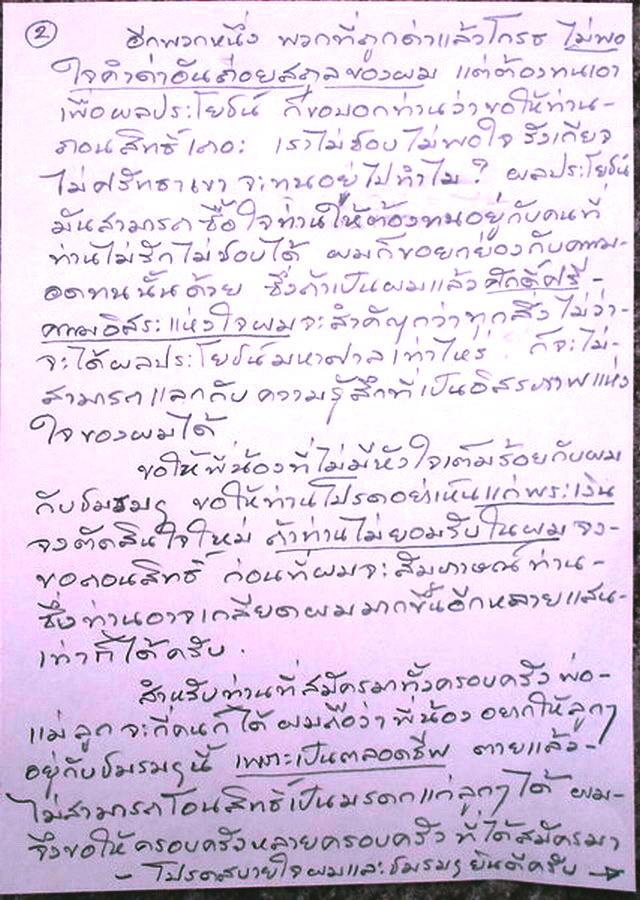 2
อีกพวกหนึ่ง พวกที่ถูกด่าแล้วโกรธ ไม่พอ
ใจคำด่าอันถ่อยสถุลของผม แต่ต้องทนเอา
เพื่อผลประโยชน์ ก็ขอบอกท่านว่าขอให้ท่าน-
ถอนสิทธิ์เถอะ เราไม่ชอบไม่พอใจ รังเกียจ
ไม่ศรัทธาเขา จะทนอยู่ไปทำไม? ผลประโยชน์
มันสามารถซื้อใจท่านให้ต้องทนอยู่กับคนที่
ท่านไม่รักไม่ชอบได้ ผมก็ขอยกย่องกับความ-
อดทนนั้นด้วย ซึ่งถ้าเป็นผมแล้วศักดิ์ศรี-
ความอิสระแห่งใจผมจะสำคัญกว่าทุกสิ่ง ไม่ว่า-
จะได้ผลประโยชน์มหาศาลเท่าไหร่ ก็จะไม่-
สามารถแลกกับความรู้สึกที่เป็นอิสรภาพแห่ง
ใจของผมได้
ขอให้พี่น้องที่ไม่มีหัวใจเต็มร้อยกับผม
กับชมรมฯ ขอให้ท่านโปรดอย่าเห็นแก่พระเงิน
จงตัดสินใจใหม่ ถ้าท่านไม่ยอมรับในผม จง-
ขอถอนสิทธิ์ ก่อนที่ผมจะสัมภาษณ์ท่าน-
ซึ่งท่านอาจเกลียดผมมากขึ้นอีกหลายแสน-
เท่าก็ได้ครับ.
สำหรับท่านที่สมัครมาทั้งครอบครัว พ่อ-
แม่ ลูก จะกี่คนก็ได้ ผมถือว่าพี่น้องอยากให้ลูกๆ
อยู่กับชมรมฯนี้ เพราะเป็นตลอดชีพ ตายแล้ว-
ไม่สามารถโอนสิทธิ์เป็นมรดกแก่ลูกๆได้ ผม-
จึงขอให้ครอบครัวหลายครอบครัวที่ได้สมัครมา
- โปรดสบายใจผมและชมรมฯยินดีครับ →